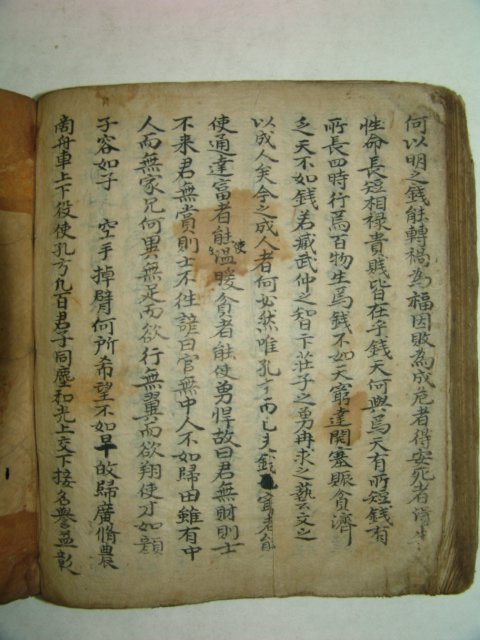 何以明之錢能轉禍為福因敗為成危者得安死者得生
性命長短相祿貴賤皆在乎錢天何與焉天有所短錢有
所長四時行焉百物生焉錢不如天窮達開塞賑貧濟
乏天不如錢若藏武仲之智卞莊子之勇冉求之藝文之
以成人矣今之成人者何必然唯孔方而已夫錢窮者能
使通達富者能使溫暖貧者能使勇悍故曰君無財則士
不来君無賞則士不往諺曰官無中人不如歸田雖有中
人而無家兄何異無足而欲行無翼而欲翔使才如顏
子容如子 空手掉臂何所希望不如早故歸廣脩農
商舟車上下役使孔方凡百君子同塵和光上交下接名譽益彰